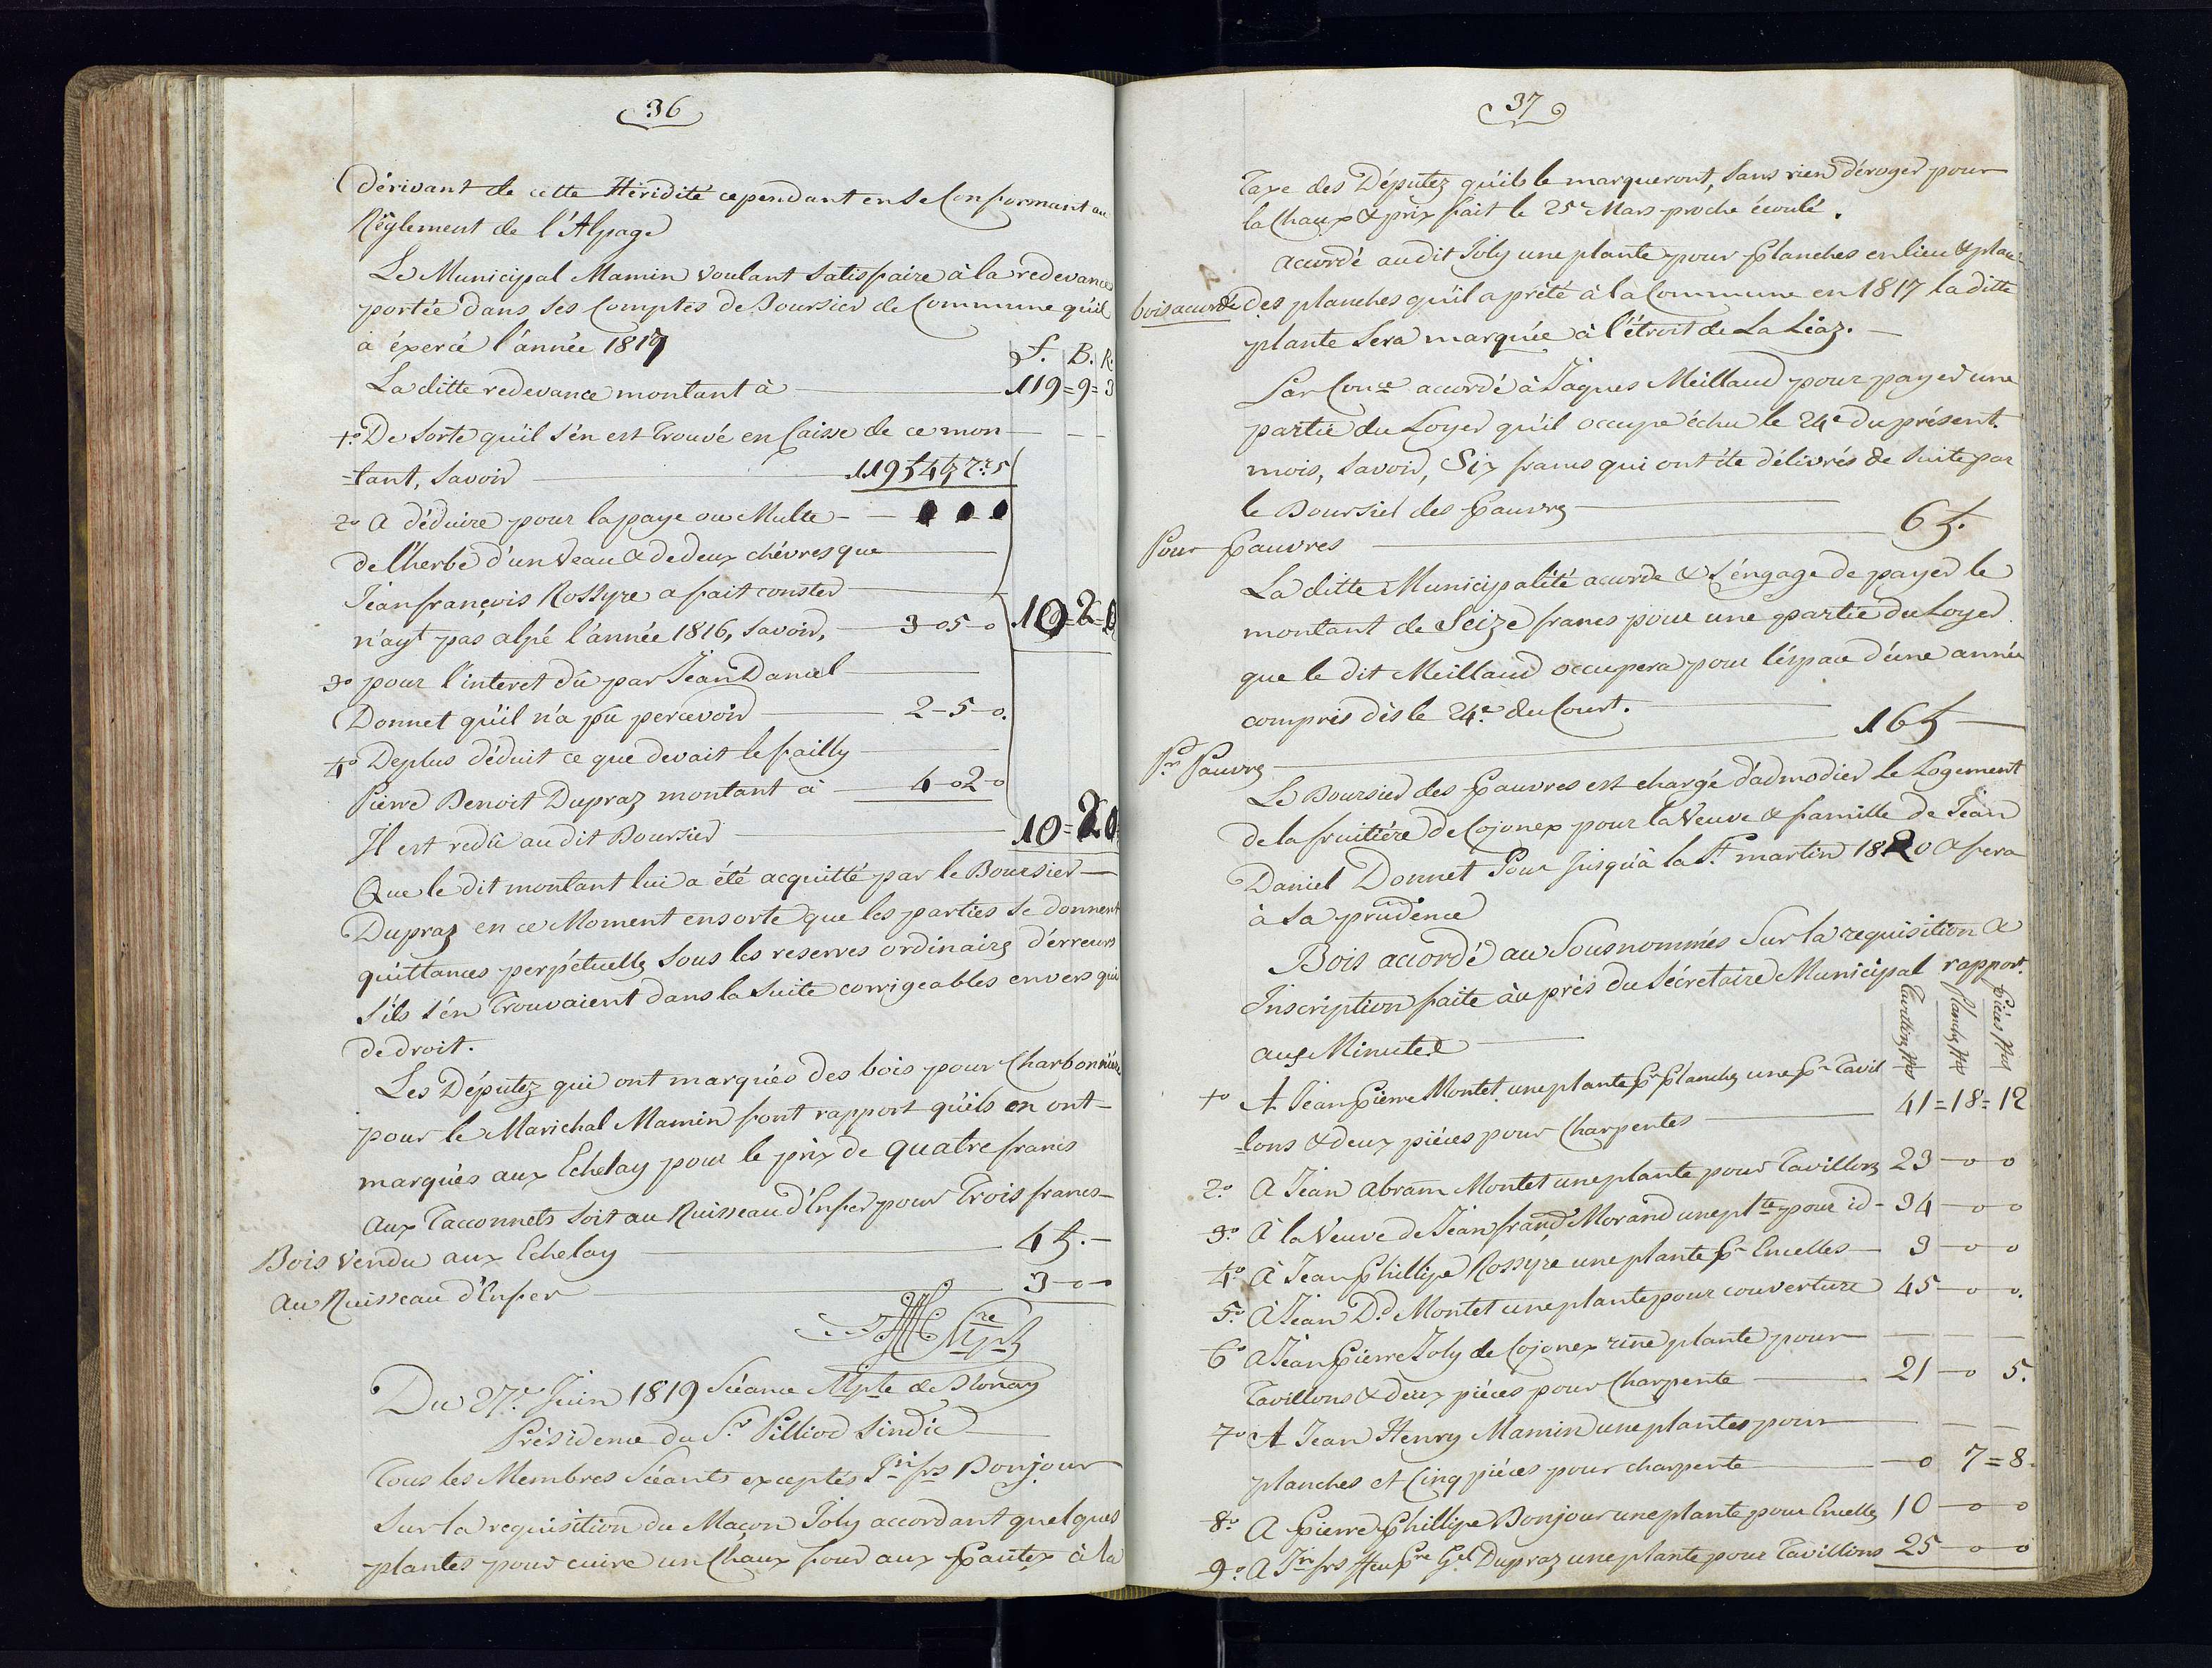 36
dérivant de cette Héridité cependant en se Conformant au
Réglement de l'Alpage
Le Municipal Mamin voulant satisfaire à la redevance
portée dans ses Comptes de Boursier de Commune qu'il
à éxercé l'année 1817
f. B. R.
La ditte redevance montant à 119=9=3
1.o De sorte qu'il s'en est trouvé en Caisse de ce mon
-tant, savoir
2.o A déduire pour la paye ou Multe
de l'herbe d'un Veau & de deux chévres que
Jean françois Rossyre a fait conster
n'ayt pas alpé l'année 1816, savoir, 3-05-0 10=2=0
3.o pour l'interet dû par Jean Daniel
Donnet qu'il n'a pû percevoir 2-5-0.
4.o Deplus déduit ce que devait le failly
Pierre Benoit Dupraz montant à 4-02-0
Il est redû au dit Boursier 10=20
Que le dit montant lui a été acquitté par le Boursier
Dupraz en ce Moment ensorte que les parties se donnent
quittances perpétuelles sous les reserves ordinaires d'erreurs
s'ils s'en trouvaient dans la suite corrigeables envers qui
de droit.
Les Députez qui ont marqués des bois pour Charbonniére
pour le Marichal Mamin font rapport qu'ils en ont
marqués aux Echelay pour le prix de quatre francs
Aux Tacconnets soit au Ruisseau d'Enfer pour Trois francs
Bois Vendu aux Echelay 4 f.-
Au Ruisseau d'Enfer 3-0-0
Du 27.e Juin 1819 Séance Mple de Blonay
Présidence du S.r Pilliod Sindic
Tous les Membres Séants exceptés Jn frs Bonjour
Sur la requisition du Maçon Joly accordant quelques
plantes pour cuire un Chaux four aux Pautex à la
37
Taxe des Députez qu'ils le marqueront, sans rien déroger pour
la Chaux & prix fait le 25e Mars proche écoulé.
Accordé audit Joly une plante pour Planches en lieu & place
bois accordé des planches qu'il a prété à la Commune en 1817 la ditte
plante sera marquée à l'étroit de La Léaz.
Par Conce accordé à Jaques Meillaud pour payer une
partie du Loyer qu'il occupe échu le 24e du présent
mois, savoir, Six francs qui ont été délivrés de suite par
le Boursier des Pauvres
Pour Pauvres 6 f.
La ditte Municipalité accorde & s'engage de payer le
montant de Seize francs pour une partie du Loyer
que le dit Meillaud occupera pour l'éspace d'une année
compris dès le 24.e du Court. 16 f
Pr Pauvres
Le Boursier des Pauvres est chargé d'admodier le Logement
de la fruitière de Cojonex pour la Veuve & famille de Jean
Daniel Donnet Pour Jusqu'à la St martin 1820 & fera
à sa prudence
Bois accordé au Sousnommés Sur la requisition &
Inscription faite àuprès du Sécretaire Municipal rapport.
aux Minutes
1o A Jean Pierre Montet une plante Pr Planches une Pr Tavil
-lons & deux piéces pour Charpentes 41=18=12
2.o A Jean Abram Montet une plante pour Tavillons 23-0-0
3.o A la Veuve de Jean franç Morand une plte pour id - 34-0-0
4.o A Jean Phillipe Rossyre une plante Pr Encelles 3-0-0
5.o A Jean D.d Montet une plante pour couverture 45-0-0.
6.o A Jean Pierre Joly de Cojonex une plante pour
Tavillons & deux piéces pour Charpente 21-0 5.
7.o A Jean Henry Mamin une plantes pour
planches et Cinq piéces pour charpente -0 7=8.
8.o A Pierre Phillipe Bonjour une plante pour Encelles 10-0-0
9.o A Jn frs ffeu Pre Gel Dupraz une plante pour Tavillions 25-0-0